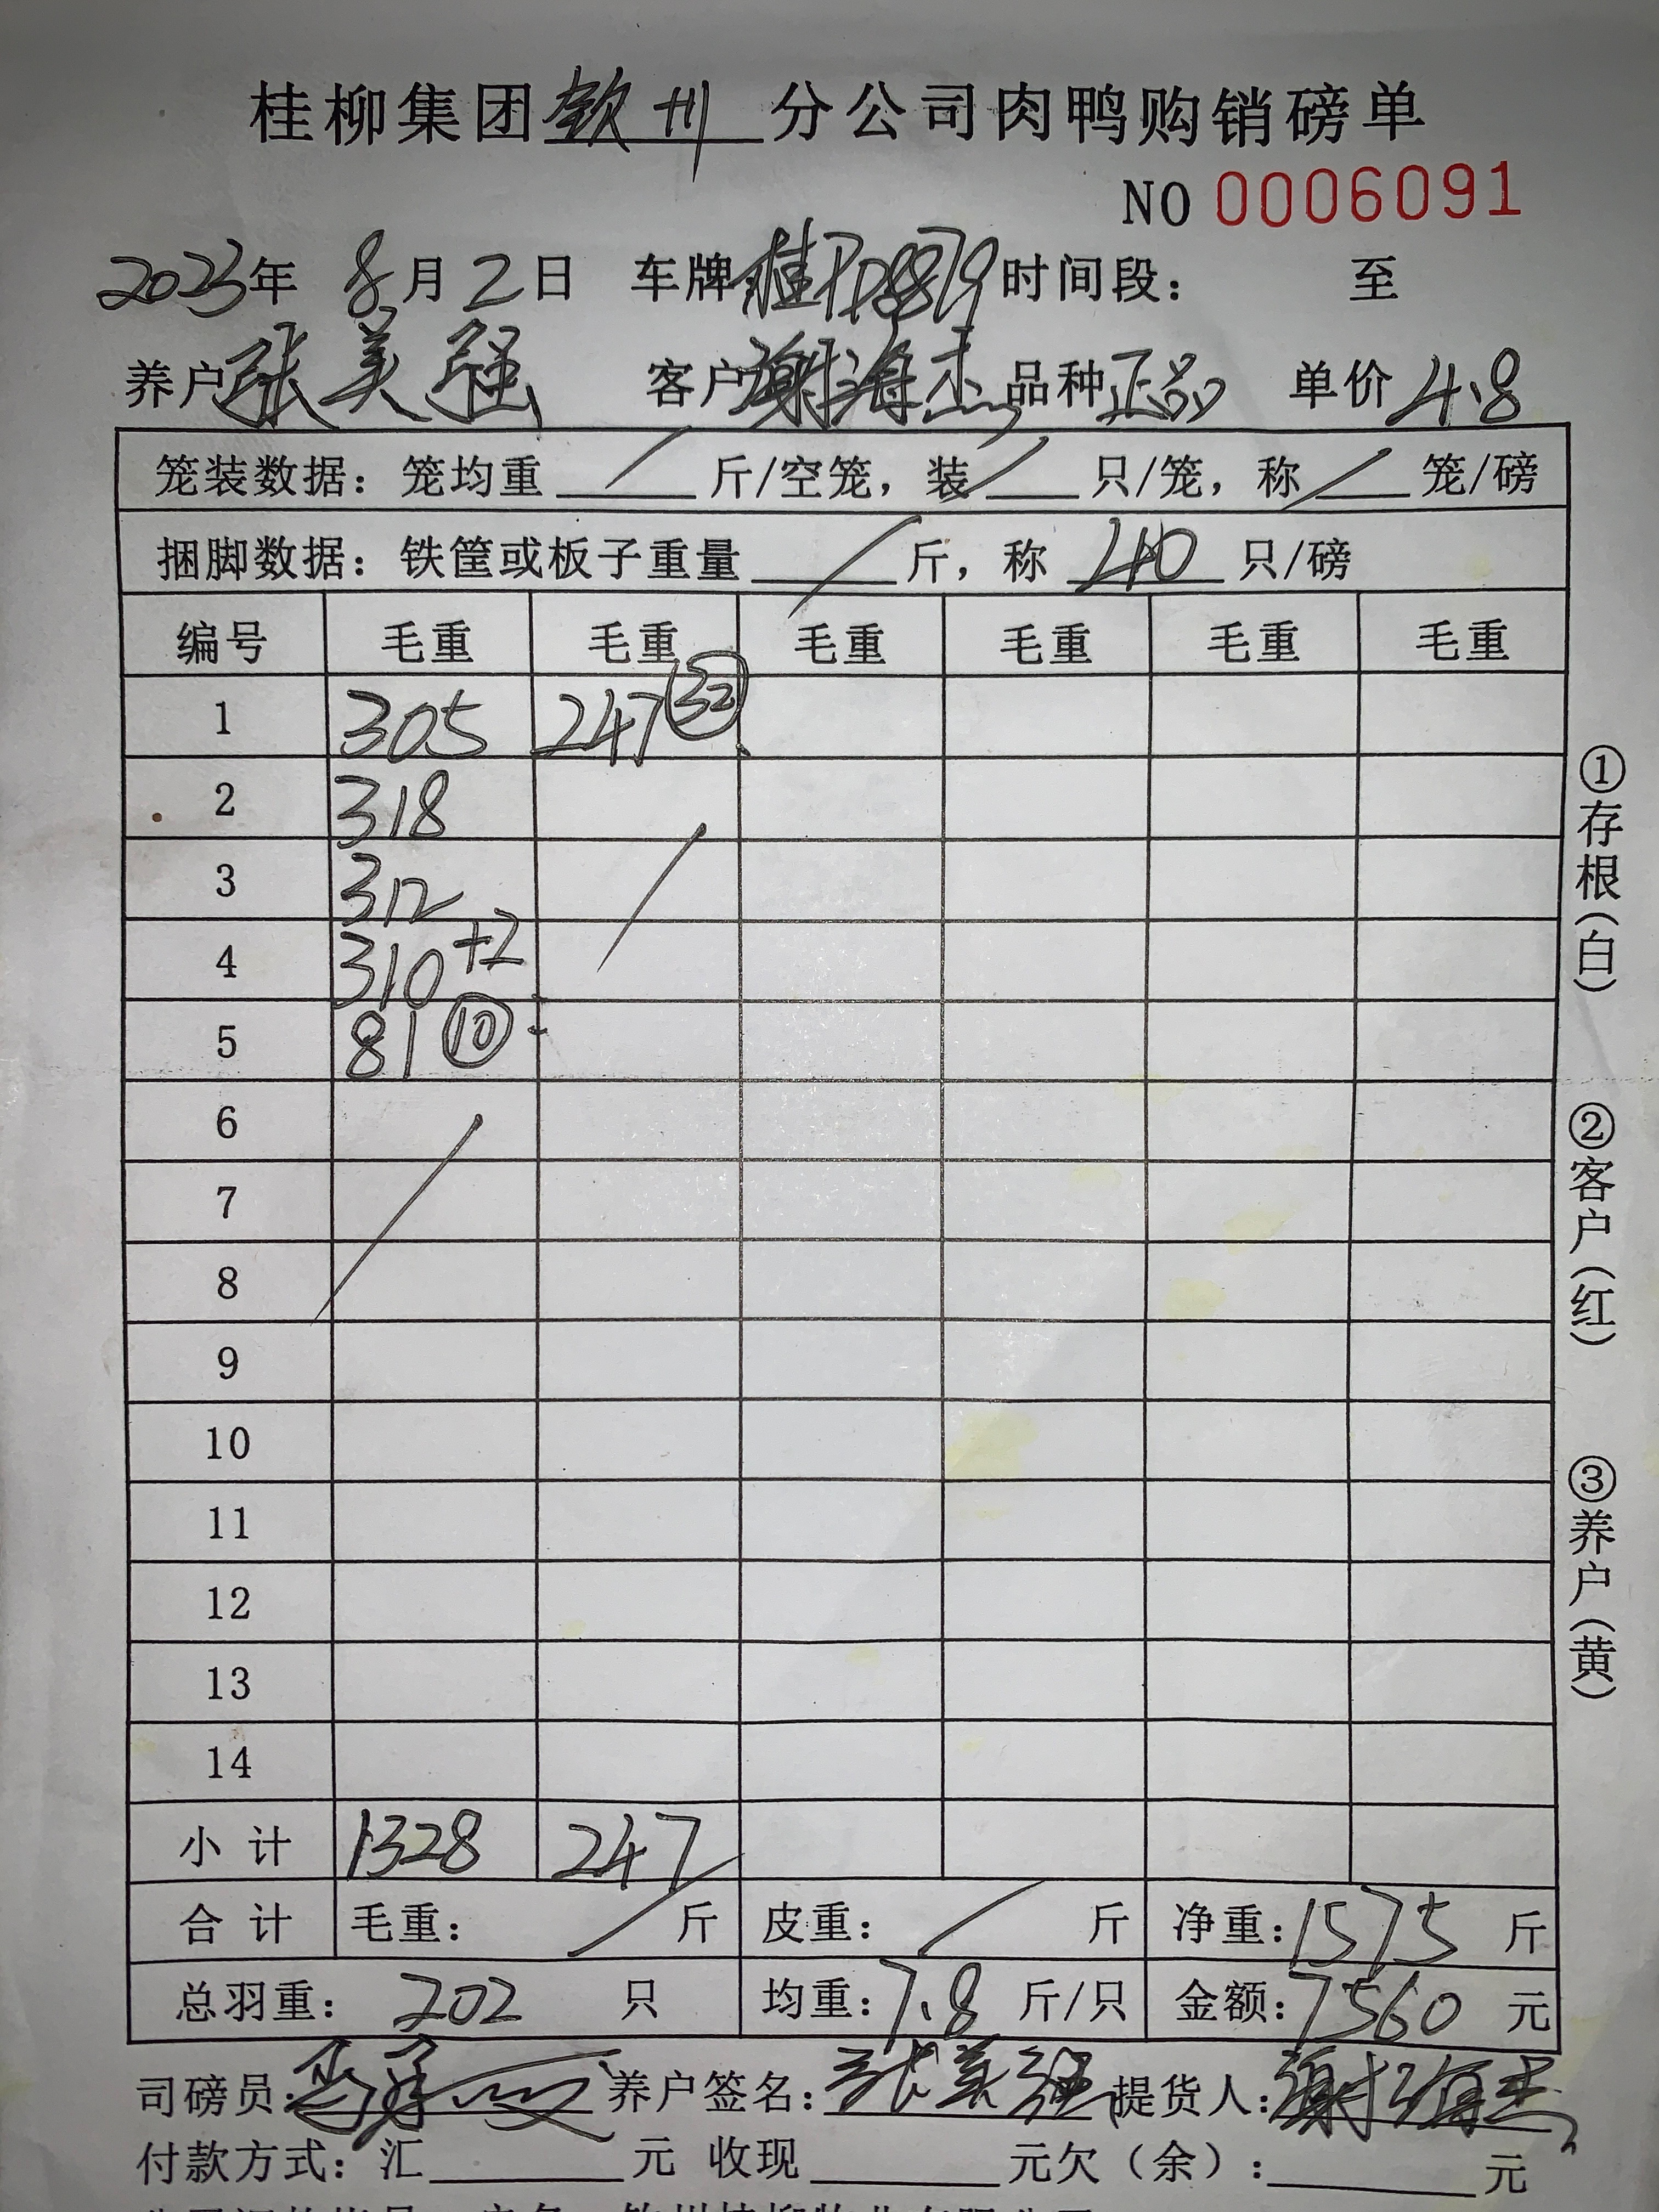 桂柳集团钦州分公司肉鸭购销磅单
NO 0006091
2023年 8月2日 车牌桂PD8879时间段： 至
养户张美强 客户谢海杰品种正品 单价4.8
笼装数据：笼均重 / 斤/空笼，装 / 只/笼，称 / 笼/磅
捆脚数据：铁筐或板子重量 / 斤，称 40 只/磅
编号 毛重 毛重 毛重 毛重 毛重 毛重
1 305 247 ㉜
2 318
3 312
4 310+2
5 81 ⑩
6
7
8
9
10
11
12
13
14
小计 1328 247
合计 毛重： / 斤 皮重： / 斤 净重：1575 斤
总羽重： 202 只 均重：7.8 斤/只 金额：7560 元
司磅员： 养户签名：张美强 提货人：谢海杰
付款方式：汇 元 收现 元欠（余）： 元
①存根（白）
②客户（红）
③养户（黄）